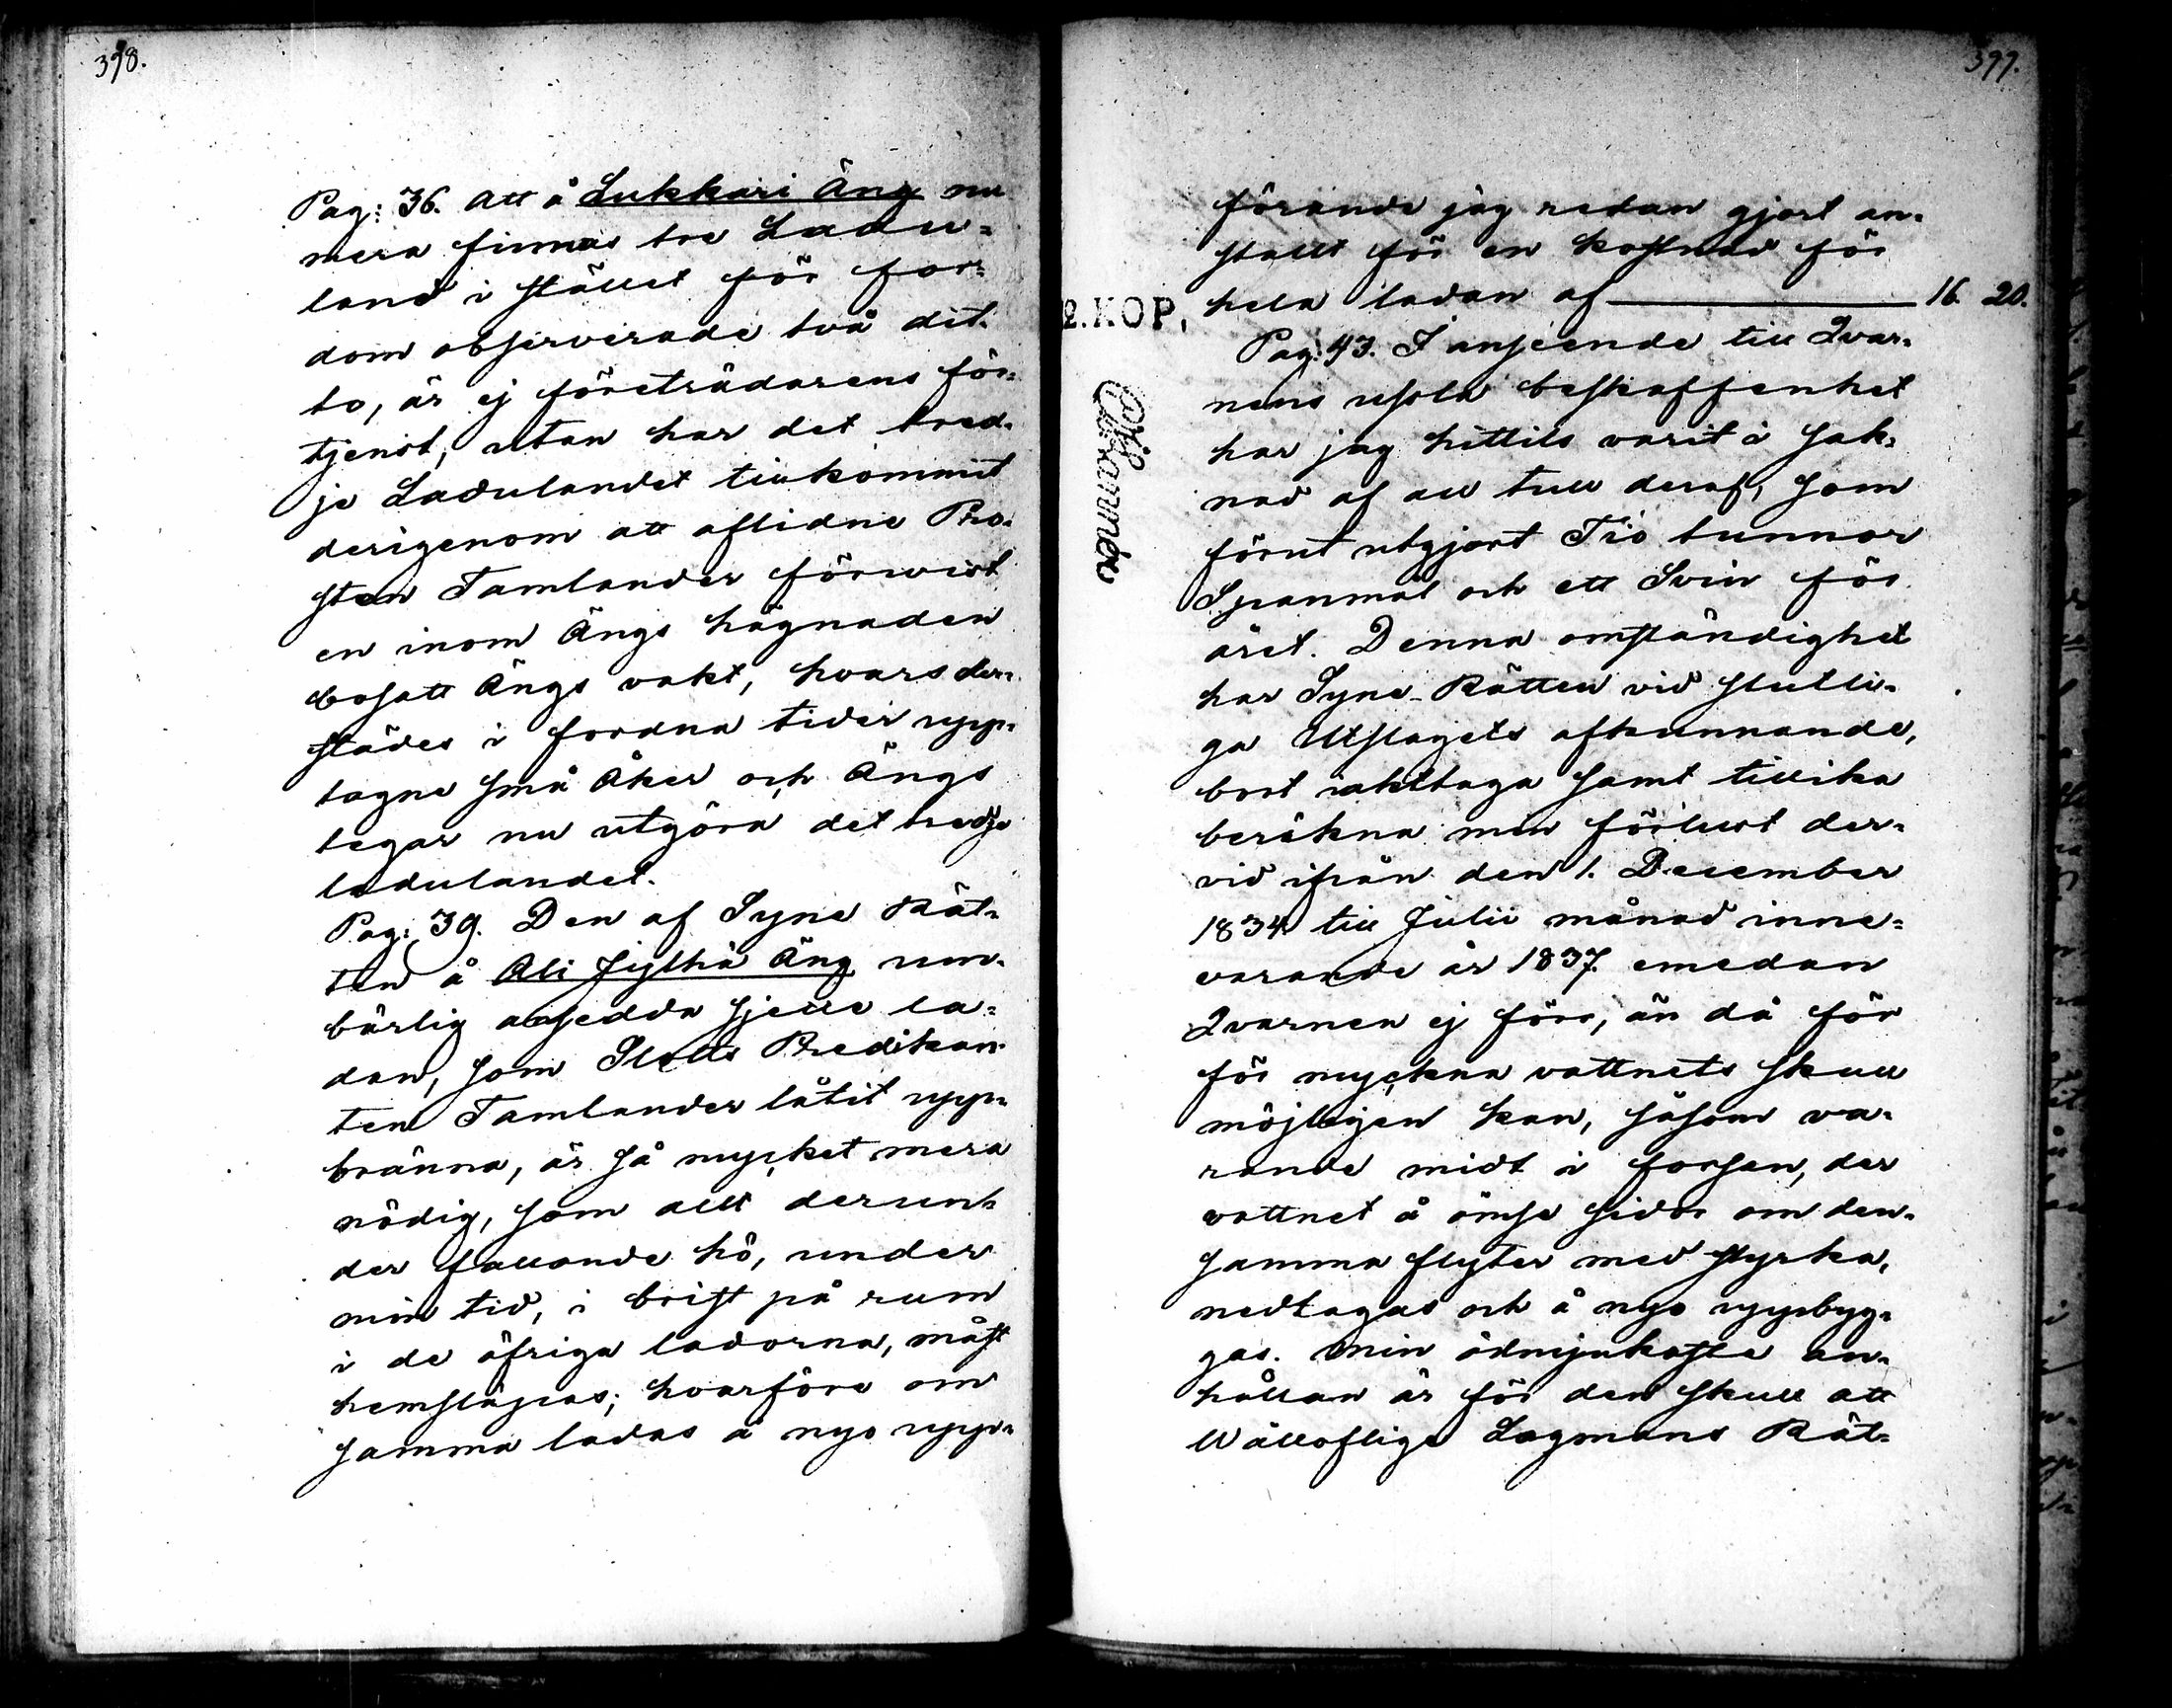 398.
Pag: 36. Att å Lukkari Äng nu
mera finnas tre Ladu-
land i stället för for-
dom observerade två dit-
to, är ej företrädarens för-
tjenst, utan har det tred-
je Ladulandet tillkommit
derigenom att aflidne Pro-
sten Tamlander förvist
en inom Ängs hägnaden
bosatt Ängs vakt, hvars der-
städes i fordna tider upp-
tagne små Åker och Ängs
tegar nu utgöra det tredje
ladulandet.
Pag: 39. Den af Syne Rät-
ten å Ali Jyllhä Äng um-
bärlig ansedda sjette la-
dan, som Slotts Predikan-
ten Tamlander låtit upp-
bränna, är så mycket mera
nödig, som allt derun-
der fallande hö, under
min tid, i brist på rum
i de öfriga ladorna, måst
hemsläpas; hvarföre om
samma ladas å nyo upp-
399.
förande jag redan gjort an-
stallt för en kostnad för
hela ladan af 16. 20.
2. KOP,
Pag: 43. I anseende till Qvar-
nens usola beskaffenhet
har jag hittils varit i sak-
nad af all tull deraf, som
förut utgjort Tio tunnor
Spanmål och ett Svin för
året. Denna omständighet
har Syne-Rätten vid slutli-
ga Utslagets afkunnande,
bort iakttaga samt tillika
beräkna min förlust der-
vid ifrån den 1. December
1834 till Julii månad inne-
varande år 1837. emedan
Qvarnen ej förr, än då för
för myckna vattnets skull
möjligen kan, såsom va-
rande midt i forsen, der
vattnet å ömse sidor om den-
samma flyter med styrka,
nedtagas och å nyo uppbyg-
gas. Min ödmjukaste an-
hållan är för den skull att
Wällofliga Lagmans Rät-